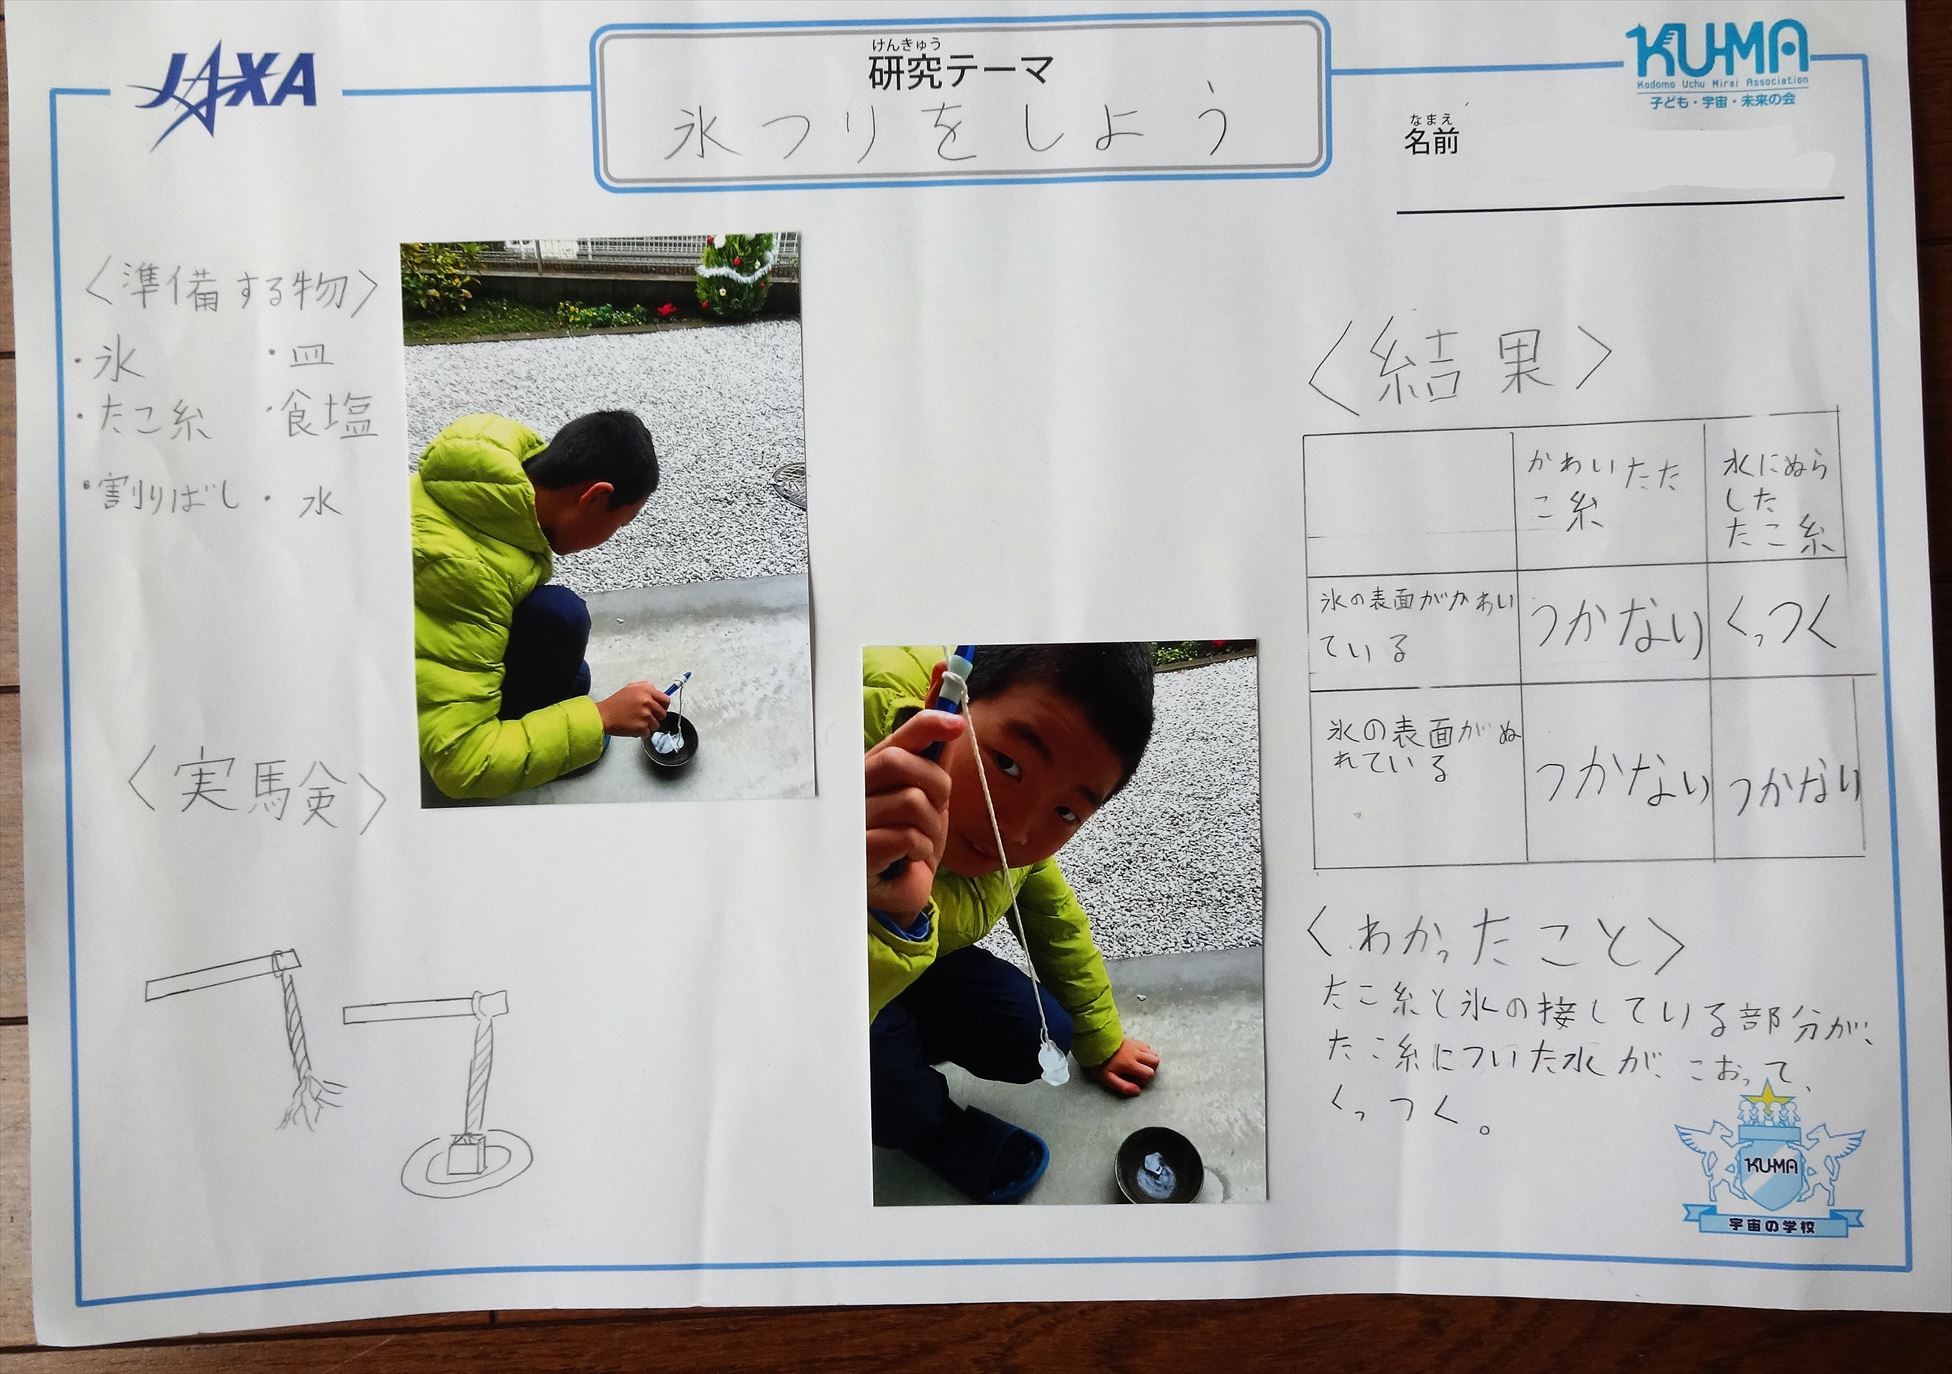 JAXA
けんきゅう
研究テーマ
氷つりをしよう
KU-MA
Kodomo Uchu Mirai Association
子ども・宇宙・未来の会
なまえ
名前
〈準備する物〉
・氷 ・皿
・たこ糸 ・食塩
・割りばし ・水
〈実験〉
〈結果〉
かわいたた
こ糸
水にぬら
した
たこ糸
氷の表面がかわい
ている
つかない
くっつく
氷の表面がぬ
れている
つかない
つかない
〈わかったこと〉
たこ糸と氷の接している部分が、
たこ糸についた水が、こおって、
くっつく。
KU-MA
宇宙の学校